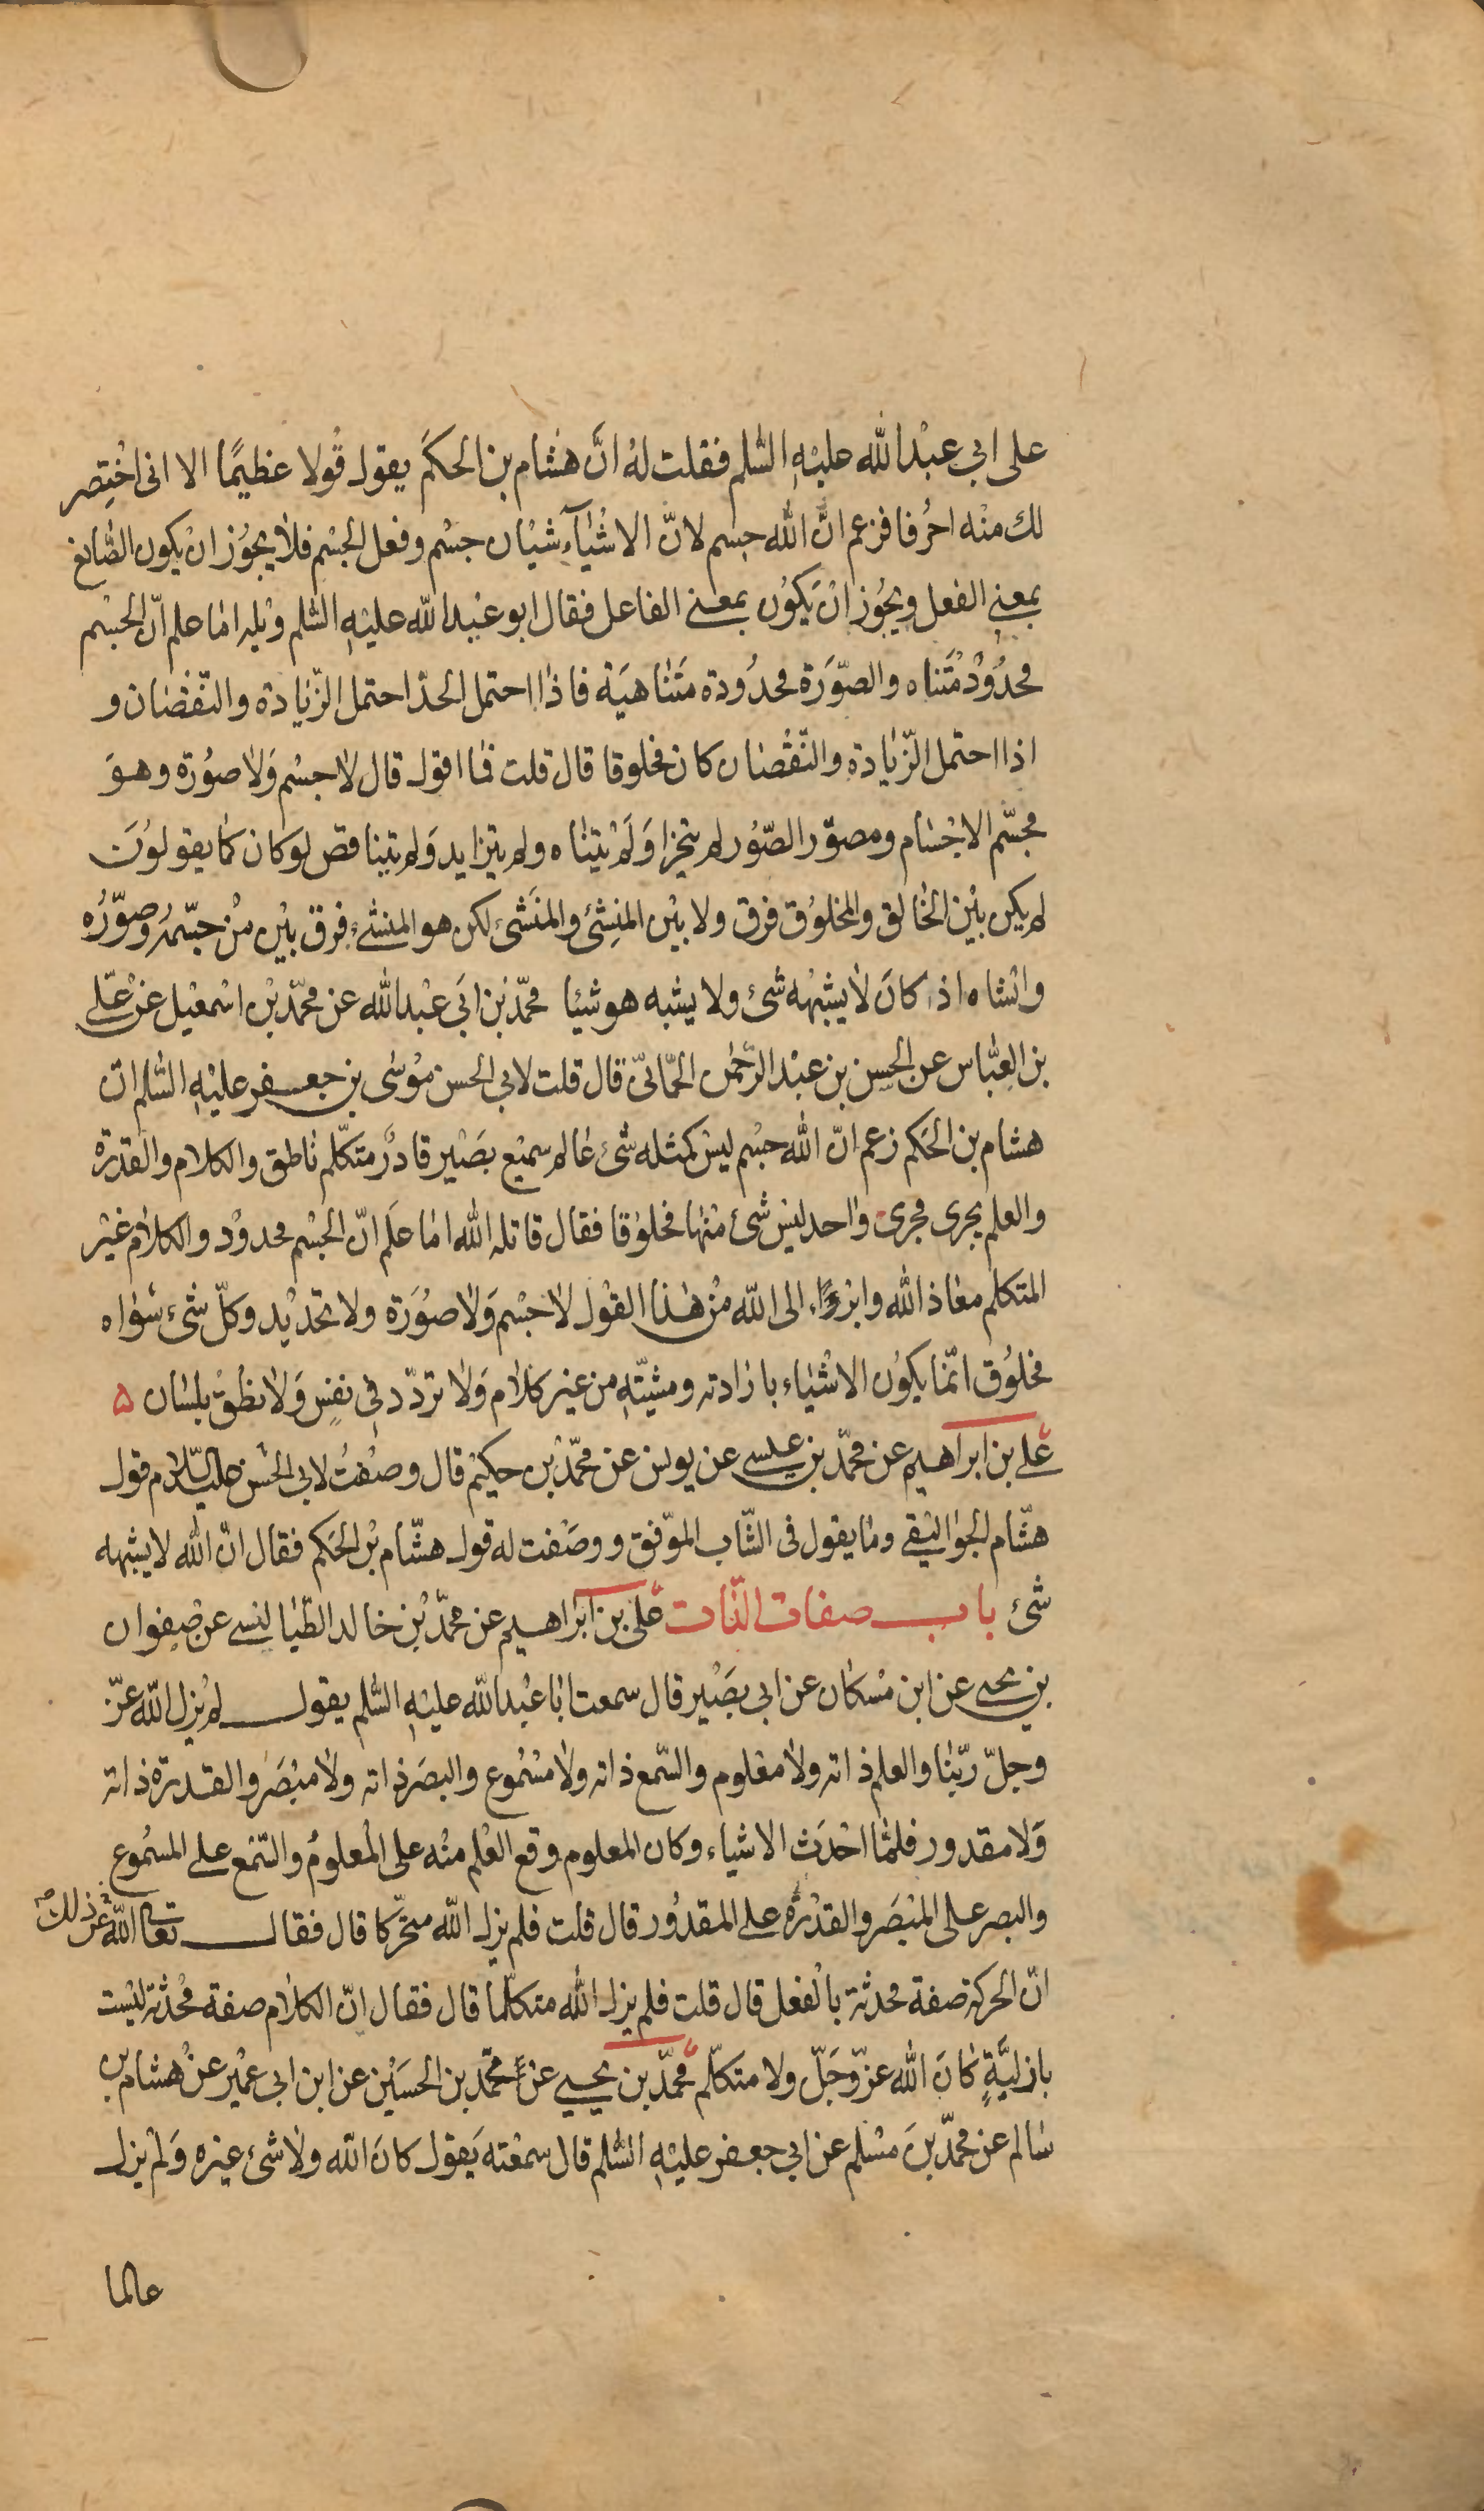 على ابي عبْدالله عليْهِ السّلم فقلت لهُ انَّ هشام بن الحكَم يقول قوْلا عظيمًا الا انى اخْتصِر
لك منْه احرُفا فزعم انّ الله جسم لانّ الاشْيَآءِ شيْان جسْم وفعل الجسْم فلا يجوُز انْ يكون الصّانع
بمعنى الفعل ويجُوز انْ يَكوُن بمعنى الفاعل فقال ابو عبْد الله عليْهِ السّلم ويْله امَا علم انّ الجسْم
محدُوْدٌ مُتَناه والصّوَرة محدُودة متَناهيَة فاذا احتمل الحدّ احتمل الزّيادة والنّقْصان و
اذا احتمل الزّيادة والنّقْصان كان مخلوقا قال قلت فما اقول قال لا جسْم وَلا صوُرة وهوَ
مجسّم الاجْسَام ومصوّر الصّوُر لم يتجزا وَلَمْ يتنَاه ولم يتزايد وَلم يتناقص لو كان كمَا يقولوُنَ
لم يكن بيْن الخالق والمخلوُق فرق ولا بيْن المنِشئ والمنَشئ لكن هو المنشئ فرق بيْن منْ جسّمهُ وصوّرُه
وانْشاه اذ كانَ لا يشبْهه شئ ولا يشبه هو شيْا محمّد بن ابَى عبْدالله عن محمّد بْن اسْمعيْل عن علّى
بن العبّاس عن الحسن بن عبْدالرّحمٰن الحمّانىّ قال قلت لابي الحسن موُسٰى بن جعفر عليْهِ السّلم ان
هشام بن الحَكم زعم انّ الله جسْم ليسْ كمثله شئ عالم سميْع بصَيْر قادرٌ متكلّم ناطق والكلام والقدرة
والعلم يجرى مجرى واحد ليْس شئ منْها مخلوْقا فقال قاتله الله امَا علَم انّ الجسْم محدوْد والكلام غيْر
المتكلم معَاذ الله وابْرؤا الى الله منْ هٰذا القوْل لا جسْم وَلا صوُرَة ولا تحْديْد وكلّ شئ سوَاه
مخلوُق انّمَا يكوُن الاشْيَاء بارَادته ومشيّتهِ من غيْر كلام وَلا تردّد في نفسٍ وَلا نطْق بلسَان ۵
على بن ابراهيم عن محمّد بن عيسى عن يونس عن محمّد بْن حكيْم قال وصفْتُ لابي الحسن عليه السّلام قول
هشّام الجوَاليقى ومَا يقول فى الشّاب الموّفق ووصَفْت له قول هشّام بْن الحَكم فقال انّ الله لا يشْبهه
شئ باب صفات الذّات على بن ابْرَاهيم عن محمّد بْن خالد الطّيَالسى عن صْفوان
بن يحيى عن ابن مسْكان عن ابي بصَيْر قال سمعت ابَا عبْدالله عليْهِ السّلم يقول لم يْزل الله عزّ
وجلّ ربّنا والعلم ذاته ولا معْلوم والسّمع ذاته ولا مسْموع والبصَر ذاته ولا مبْصَر والقدرة ذاته
وَلا مقدور فلمّا احْدَث الاشياء وكان المعلوم وقع العْلم منْه على المْعلومُ والسّمع على المسْموع
والبصر على المبْصَر والقدْرة على المقدوُر قال قلت فلم يزل الله متحّركا قال فقال تعالى الله عن ذلك
انّ الحركة صفة محدثة بالْفعْل قال قلت فلم يزل الله متكلّما قال فقال انّ الكلام صفة مْحدثة ليْست
بازليّةٍ كانَ الله عزّ وَجَلّ ولا متكلّم محمّد بن يحيى عن محّمد بن الحسَيْن عن ابن ابي عميْر عنْ هشام بن
سَالم عن محمّد بنَ مسْلم عن ابي جعفر عليْهِ السّلم قال سمعْته يَقول كانَ الله ولا شئ غيره وَلم يزل
عالما